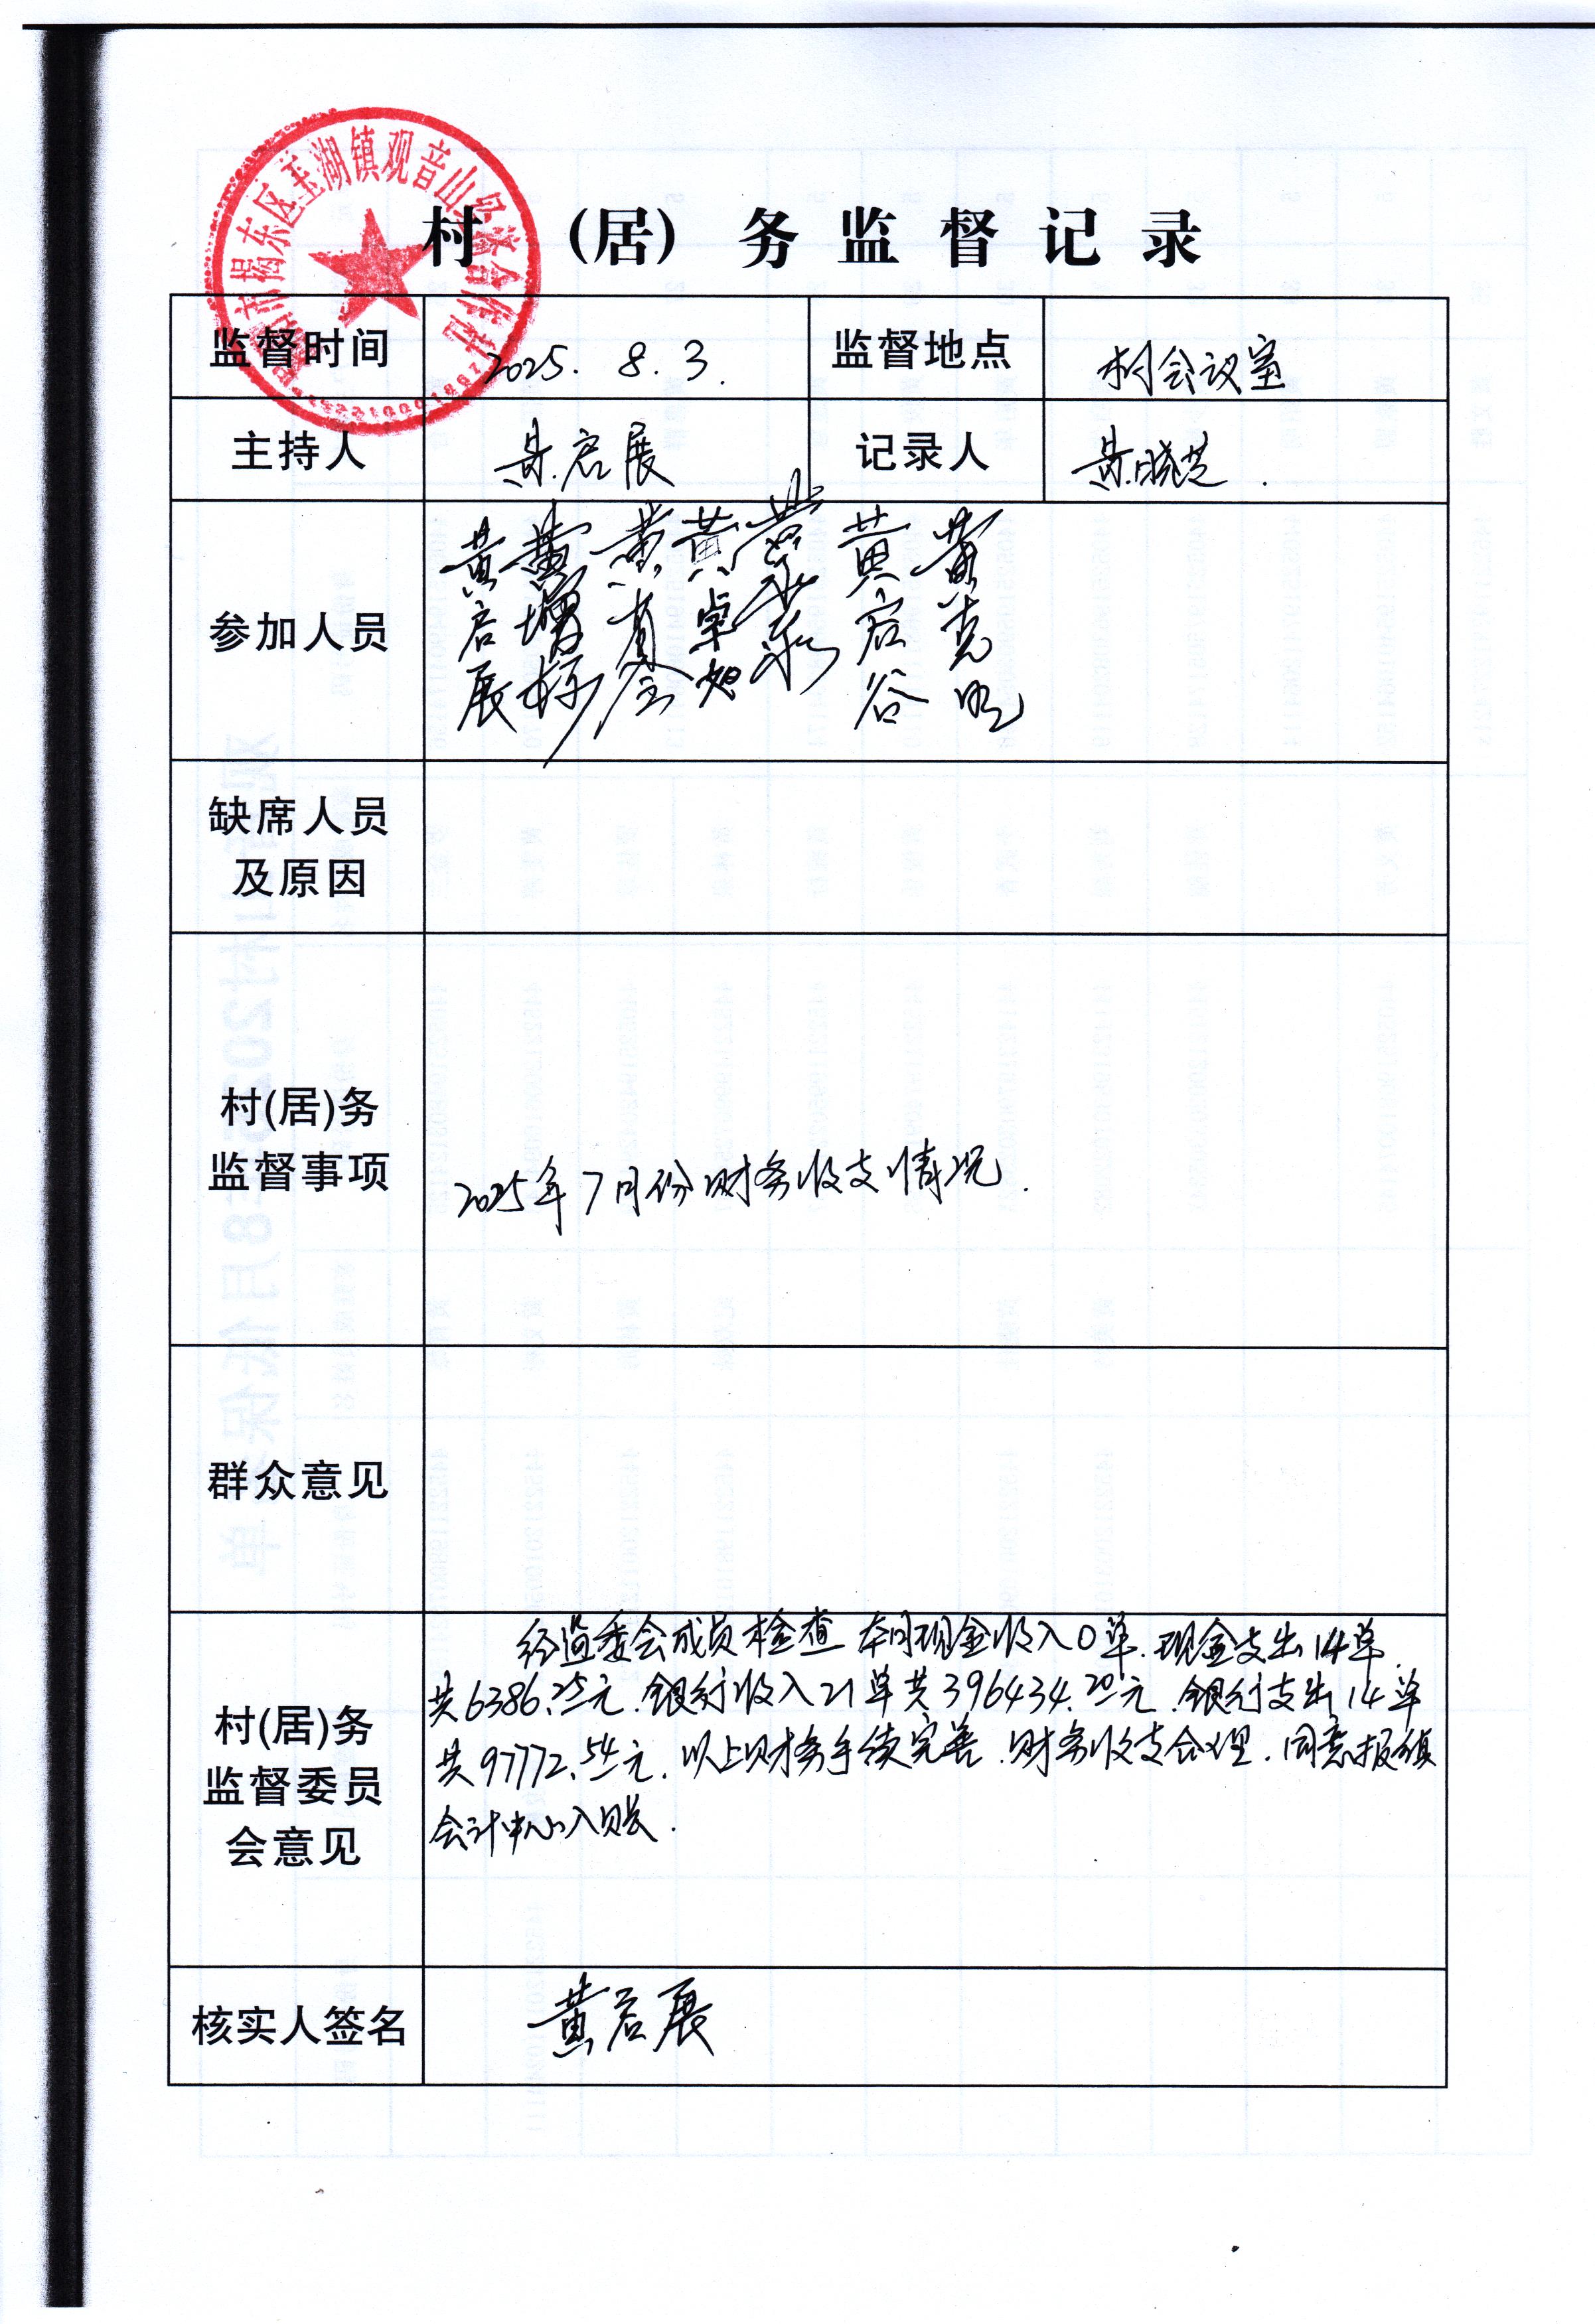 揭阳市揭东区玉湖镇观音山经济合作社
村(居)务监督记录
监督时间 2025.8.3. 监督地点 村会议室
主持人 黄启展 记录人 黄晓芝.
参加人员 黄启展 黄增标 黄有金 黄卓旭 黄永录 黄启谷 黄克明
缺席人员
及原因
村(居)务
监督事项
2025年7月份财务收支情况.
群众意见
村(居)务
监督委员
会意见
经监委会成员检查 本月现金收入0单.现金支出14单.
共6386.25元.银行收入21单共396434.20元.银行支出14单
共97772.54元.以上财务手续完善.财务收支合理.同意报镇
会计中心入账.
核实人签名 黄启展